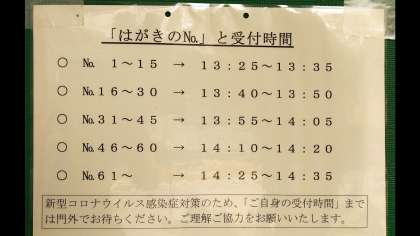 「はがきの№」と受付時間
○ № 1～15 → 13：25～13：35
○ №16～30 → 13：40～13：50
○ №31～45 → 13：55～14：05
○ №46～60 → 14：10～14：20
○ №61～ → 14：25～14：35
新型コロナウイルス感染症対策のため、「ご自身の受付時間」まで
は門外でお待ちください。ご理解ご協力をお願いいたします。